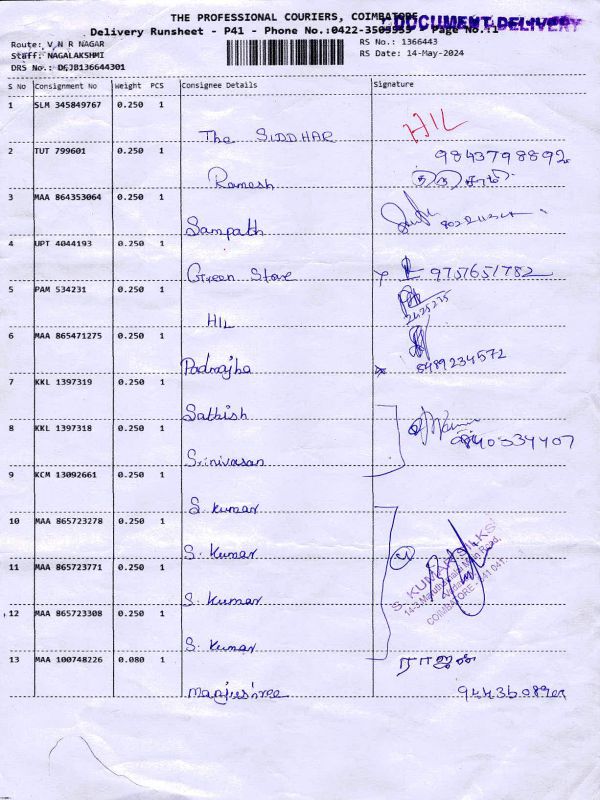 THE PROFESSIONAL COURIERS, COIMBATORE
DOCUMENT DELIVERY
Delivery Runsheet - P41 - Phone No.:0422-3505959 - Page No.:1
Route: V N R NAGAR
RS No.: 1366443
Staff: NAGALAKSHMI
RS Date: 14-May-2024
DRS No.: DEJB136644301
S No Consignment No Weight PCS Consignee Details Signature
1 SLM 345849767 0.250 1
The SIDDHAR HIL
2 TUT 799601 0.250 1 9843798892
Ramesh
3 MAA 864353064 0.250 1
Sampath
4 UPT 4044193 0.250 1
Green Store 9751651782
5 PAM 534231 0.250 1
HIL 2425235
6 MAA 865471275 0.250 1
Padmajha 8489234572
7 KKL 1397319 0.250 1
Sathish
8 KKL 1397318 0.250 1
Srinivasan
9 KCM 13092661 0.250 1
S. Kumar
10 MAA 865723278 0.250 1
S. Kumar
11 MAA 865723771 0.250 1
S. Kumar
12 MAA 865723308 0.250 1
S. Kumar
S. KUMAR SILKS
COIMBATORE - 641 041.
13 MAA 100748226 0.080 1 ராஜன்
Manjushree